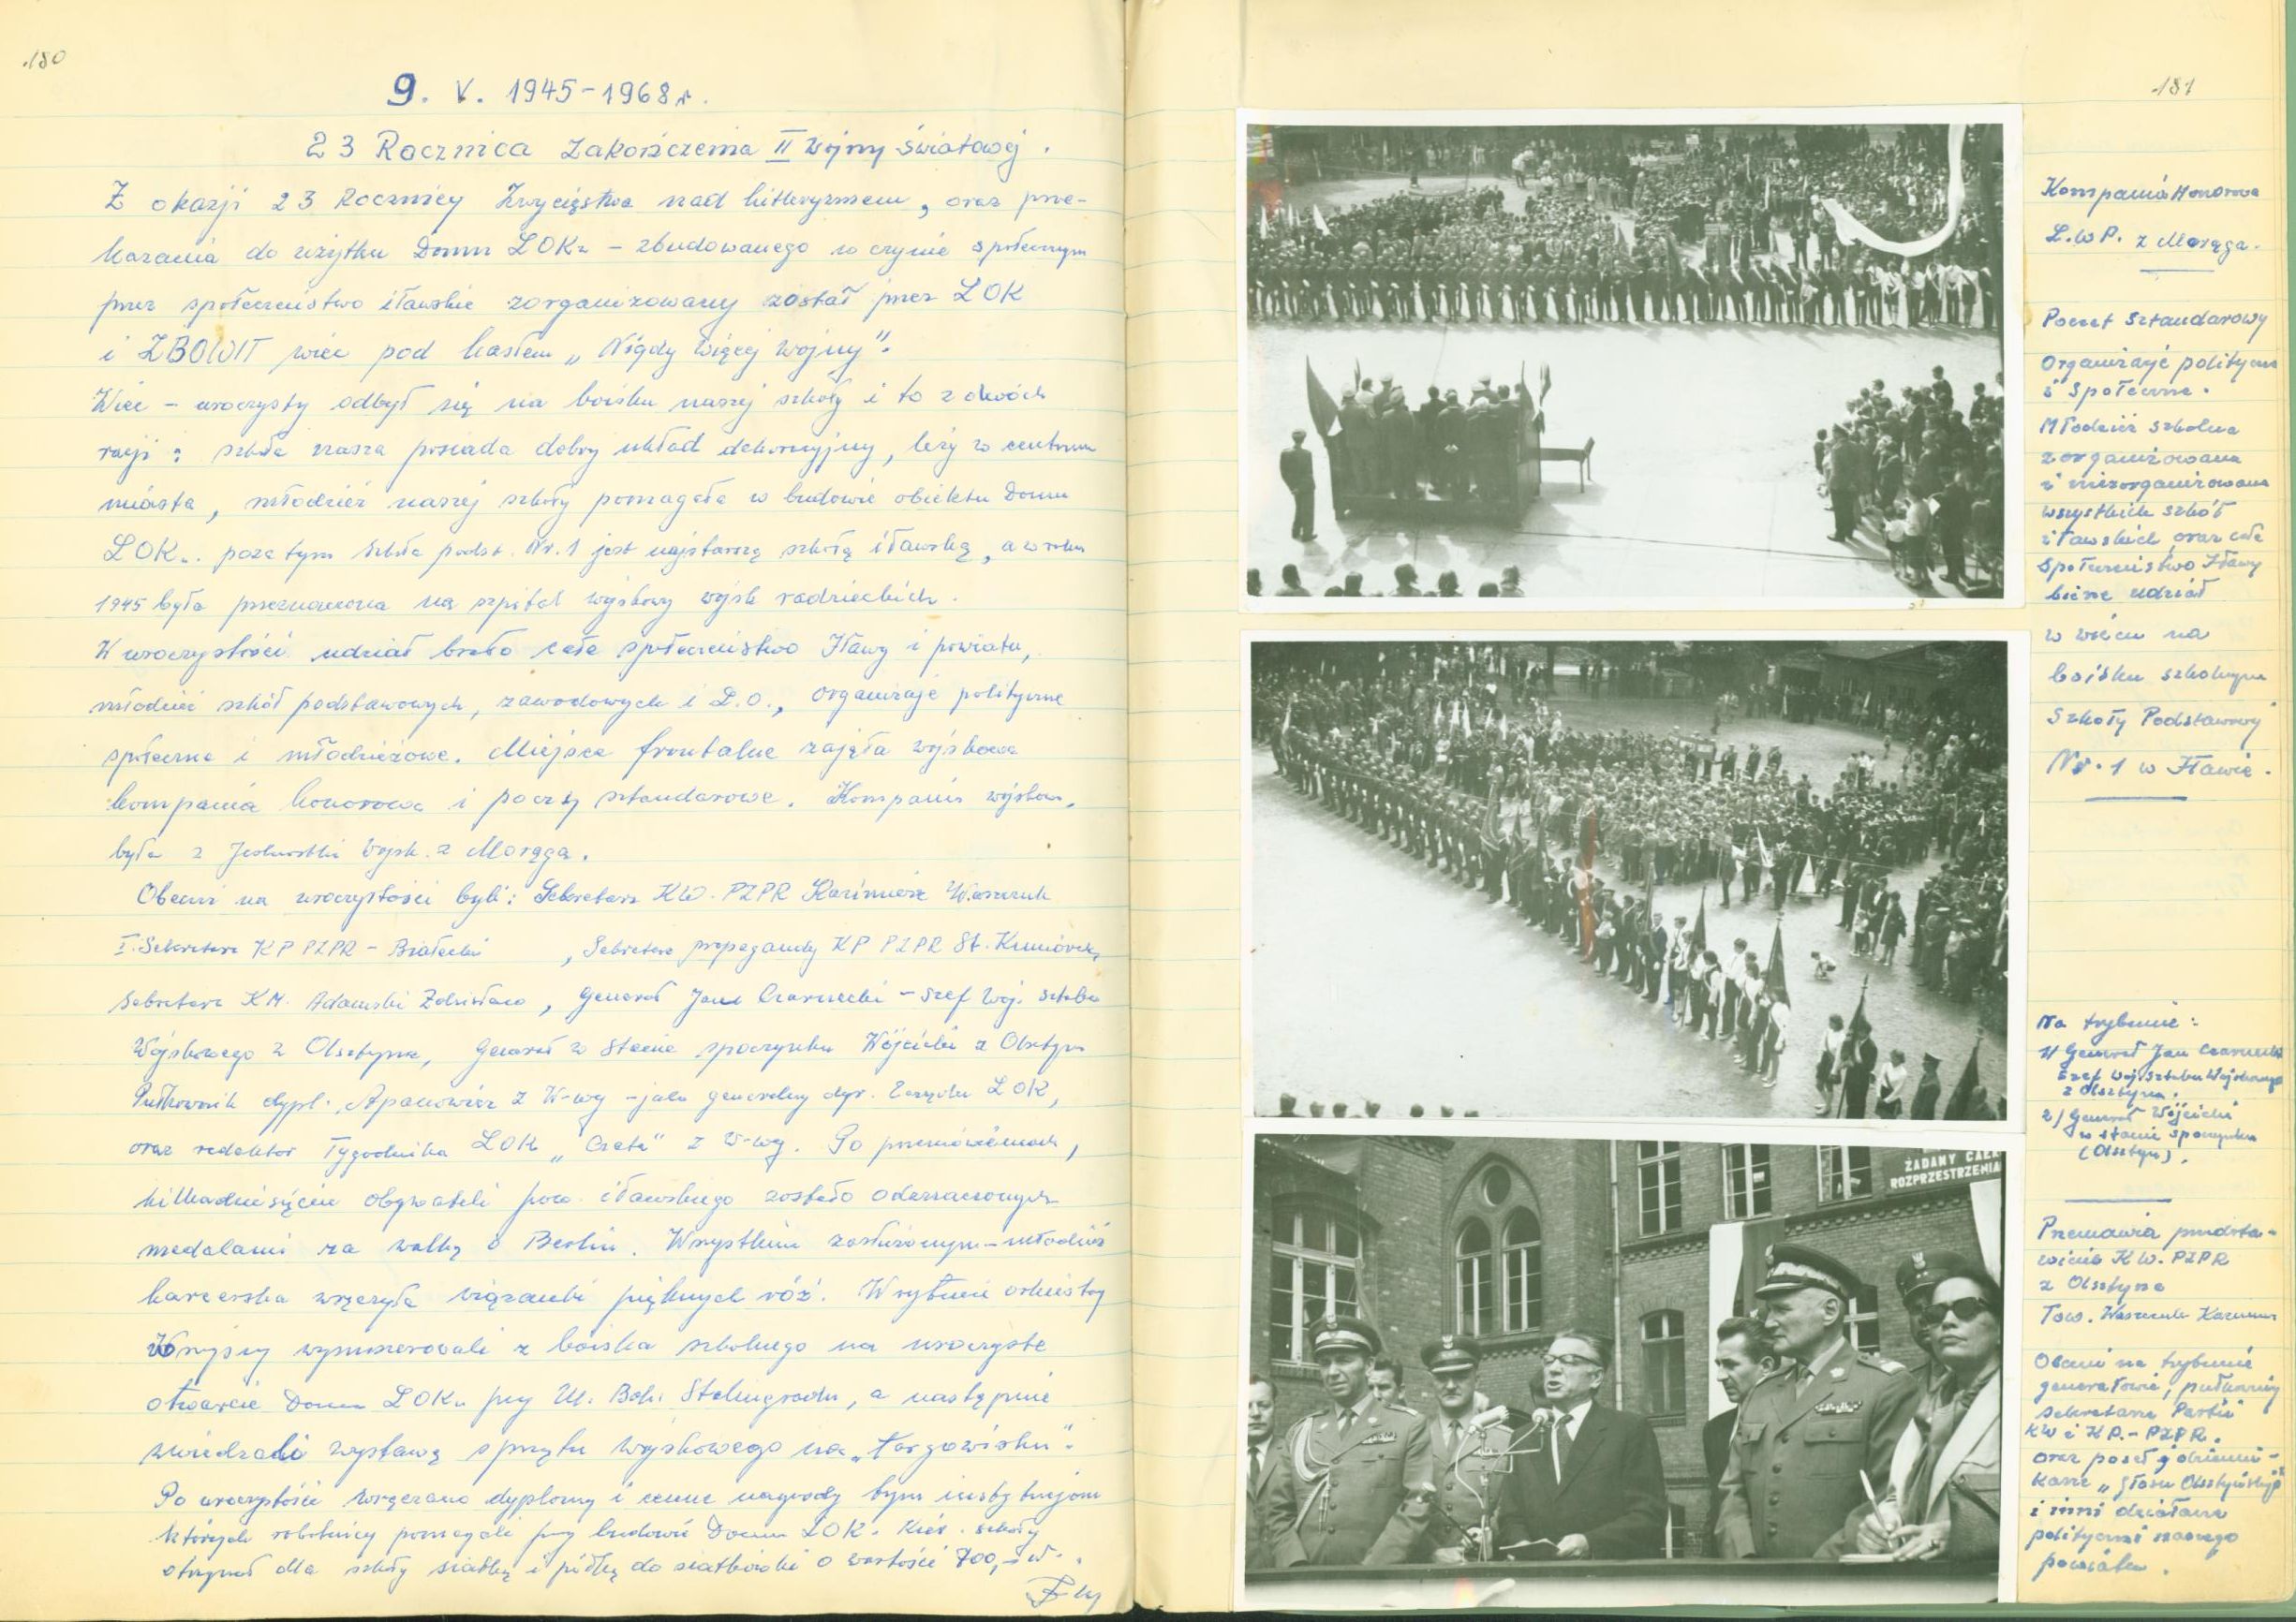 180
9. V. 1945-1968r.
23 Rocznica Zakończenia II Wojny Światowej.
Z okazji 23 Rocznicy Zwycięstwa nad hitleryzmem, oraz prze-
kazania do użytku Domu LOKu - zbudowanego w czynie społecznym
przez społeczeństwo iławskie zorganizowany został przez LOK
i ZBOWiT wiec pod hasłem „Nigdy Więcej Wojny".
Wiec - uroczysty odbył się na boisku naszej szkoły i to z dwóch
racji: szkoła nasza posiada dobry układ dekoracyjny, leży w centrum
miasta, młodzież naszej szkoły pomagała w budowie obiektu Domu
LOKu. poza tym Szkoła podst. Nr. 1 jest najstarszą szkołą iławską, a w roku
1945 była przeznaczona na szpital wojskowy wojsk radzieckich.
W uroczystości udział brało całe społeczeństwo Iławy i powiatu,
młodzież szkół podstawowych, zawodowych i L.O., organizacje polityczne
społeczne i młodzieżowe. Miejsce frontalne zajęła wojskowa
kompania honorowa i poczty sztandarowe. Kompania wojskow.
była z Jednostki Wojsk. z Morąga.
Obecni na uroczystości byli: Sekretarz KW. PZPR Kazimierz Waszczuk
I. Sekretarz KP PZPR - Białecki , Sekretarz propagandy KP PZPR St.
Sekretarz KM. Adamski Zdzisław, Generał Jan Czarnecki - Szef Woj. Sztabu
Wojskowego z Olsztyna, Generał w Stanie spoczynku Wójcicki z Olsztyna
Pułkownik dypl. Apanowicz z W-wy - jako generalny dyr. Zarządu LOK,
oraz redaktor Tygodnika LOK „Czata" z W-wy. Po przemówieniach,
kilkadziesięciu obywateli pow. iławskiego zostało odznaczonych
medalami za walkę o Berlin. Wszystkim zasłużonym - młodzież
harcerska wręczyła wiązanki pięknych róż. W rytmie orkiestry
Wszyscy wymaszerowali z boiska szkolnego na uroczyste
otwarcie Domu LOKu przy Ul. Boh. Stalingradu, a następnie
zwiedzali wystawę sprzętu wojskowego na „targowisku".
Po uroczystości wręczono dyplomy i cenne nagrody tym instytucjom
których robotnicy pomagali przy budowie Domu LOK. Kier. szkoły
otrzymał dla szkoły siatkę i piłkę do siatkówki o wartości 700,-
181
Kompania Honorowa
L.W P. z Morąga.
Poczet Sztandarowy
Organizacje polityczne
i Społeczne.
Młodzież szkolna
zorganizowana
i niezorganizowana
wszystkich szkół
iławskich oraz całe
Społeczeństwo Iławy
bierze udział
w wiecu na
boisku szkolnym
Szkoły Podstawowej
Nr. 1 w Iławie.
Na trybunie:
1/ Generał Jan Czarnecki
Szef Woj. Sztabu Wojskowego
z Olsztyna.
2) Generał Wójcicki
w stanie spoczynku
(Olsztyn).
Przemawia przedsta-
wiciel KW. PZPR
z Olsztyna
Tow. Waszczuk Kazimierz
Obecni na trybunie
generałowie, pułkownicy
sekretarze Partii
KW i KP. - PZPR.
oraz poseł i dzienni-
karze „Głosu Olsztyńskiego"
i inni działacze
polityczni naszego
powiatu.
ŻĄDAMY CAŁK
ROZPRZESTRZENIA